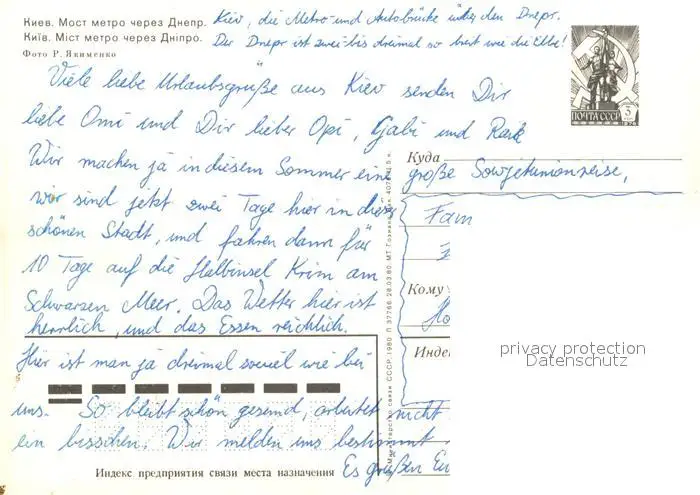 Киев. Мост метро через Днепр.
Київ. Міст метро через Дніпро.
Фото Р. Якименко
Kiev, die Metro- und Autobrücke über den Dnepr.
Der Dnepr ist zwei- bis dreimal so breit wie die Elbe!
ПОЧТА СССР 3
Viele liebe Urlaubsgrüße aus Kiev senden Dir
liebe Omi und Dir lieber Opi, Gabi und
Wir machen ja in diesem Sommer eine
große Sowjetunionreise,
wir sind jetzt zwei Tage hier in dieser
schönen Stadt, und fahren dann für
10 Tage auf die Halbinsel Krim am
Schwarzen Meer. Das Wetter hier ist
herrlich, und das Essen reichlich.
Hier ist man ja dreimal soviel wie bei
uns. So bleibt schön gesund, arbeitet nicht
ein bisschen. Wir melden uns bestimmt
Es grüßen Eu
Куда
Fam
Кому
Ho
Инде
privacy protection
Datenschutz
Индекс предприятия связи места назначения
Министерство связи СССР. 1980 28.03.80 МТ Гознака. Зак.